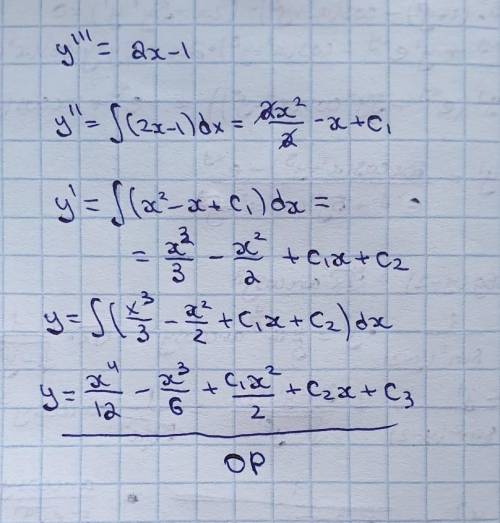 y''' = 2x-1
y'' = ∫(2x-1)dx = 2x²/2 -x+c₁
y' = ∫(x²-x+c₁)dx =
= x³/3 - x²/2 + c₁x + c₂
y = ∫(x³/3 - x²/2 + c₁x + c₂)dx
y = x⁴/12 - x³/6 + c₁x²/2 + c₂x + c₃
OP